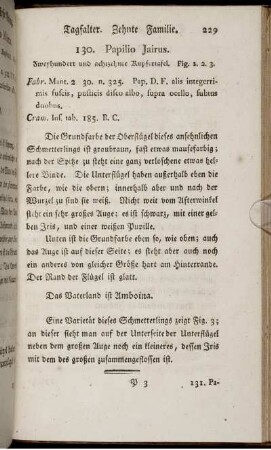 Tagfalter. Zehnte Familie. 229
130. Papilio Jairus.
Zweyhundert und achtzehnte Kupfertafel. Fig. 1. 2. 3.
Fabr. Mant. 2. 30. n. 325. Pap. D. F. alis integerri-
mis fuscis, posticis disco albo, supra ocello, subtus
duobus.
Cram. Ins. tab. 185. B. C.
Die Grundfarbe der Oberflügel dieses ansehnlichen
Schmetterlings ist graubraun, fast etwas mausefarbig;
nach der Spitze zu steht eine ganz verloschene etwas hel-
lere Binde. Die Unterflügel haben außerhalb eben die
Farbe, wie die obern; innerhalb aber und nach der
Wurzel zu sind sie weiß. Nicht weit vom Afterwinkel
steht ein sehr großes Auge; es ist schwarz, mit einer gel-
ben Iris, und einer weißen Pupille.
Unten ist die Grundfarbe eben so, wie oben; auch
das Auge ist auf dieser Seite; es steht aber auch noch
ein anderes von gleicher Größe hart am Hinterrande.
Der Rand der Flügel ist glatt.
Das Vaterland ist Amboina.
Eine Varietät dieses Schmetterlings zeigt Fig. 3;
an dieser sieht man auf der Unterseite der Unterflügel
neben dem großen Auge noch ein kleineres, dessen Iris
mit dem des großen zusammengeflossen ist.
P 3 131. Pa-